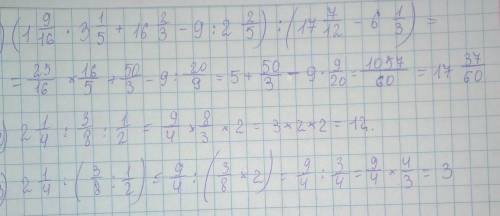 ) (1 9/16 · 3 1/5 + 16 2/3 - 9 : 2 2/5) : (17 7/12 - 6 1/3) =
= 25/16 × 16/5 + 50/3 - 9 : 20/9 = 5 + 50/3 - 9 · 9/20 = 1057/60 = 17 37/60
) 2 1/4 : 3/8 : 1/2 = 9/4 × 8/3 × 2 = 3 × 2 × 2 = 12.
) 2 1/4 : (3/8 : 1/2) = 9/4 : (3/8 × 2) = 9/4 : 3/4 = 9/4 × 4/3 = 3